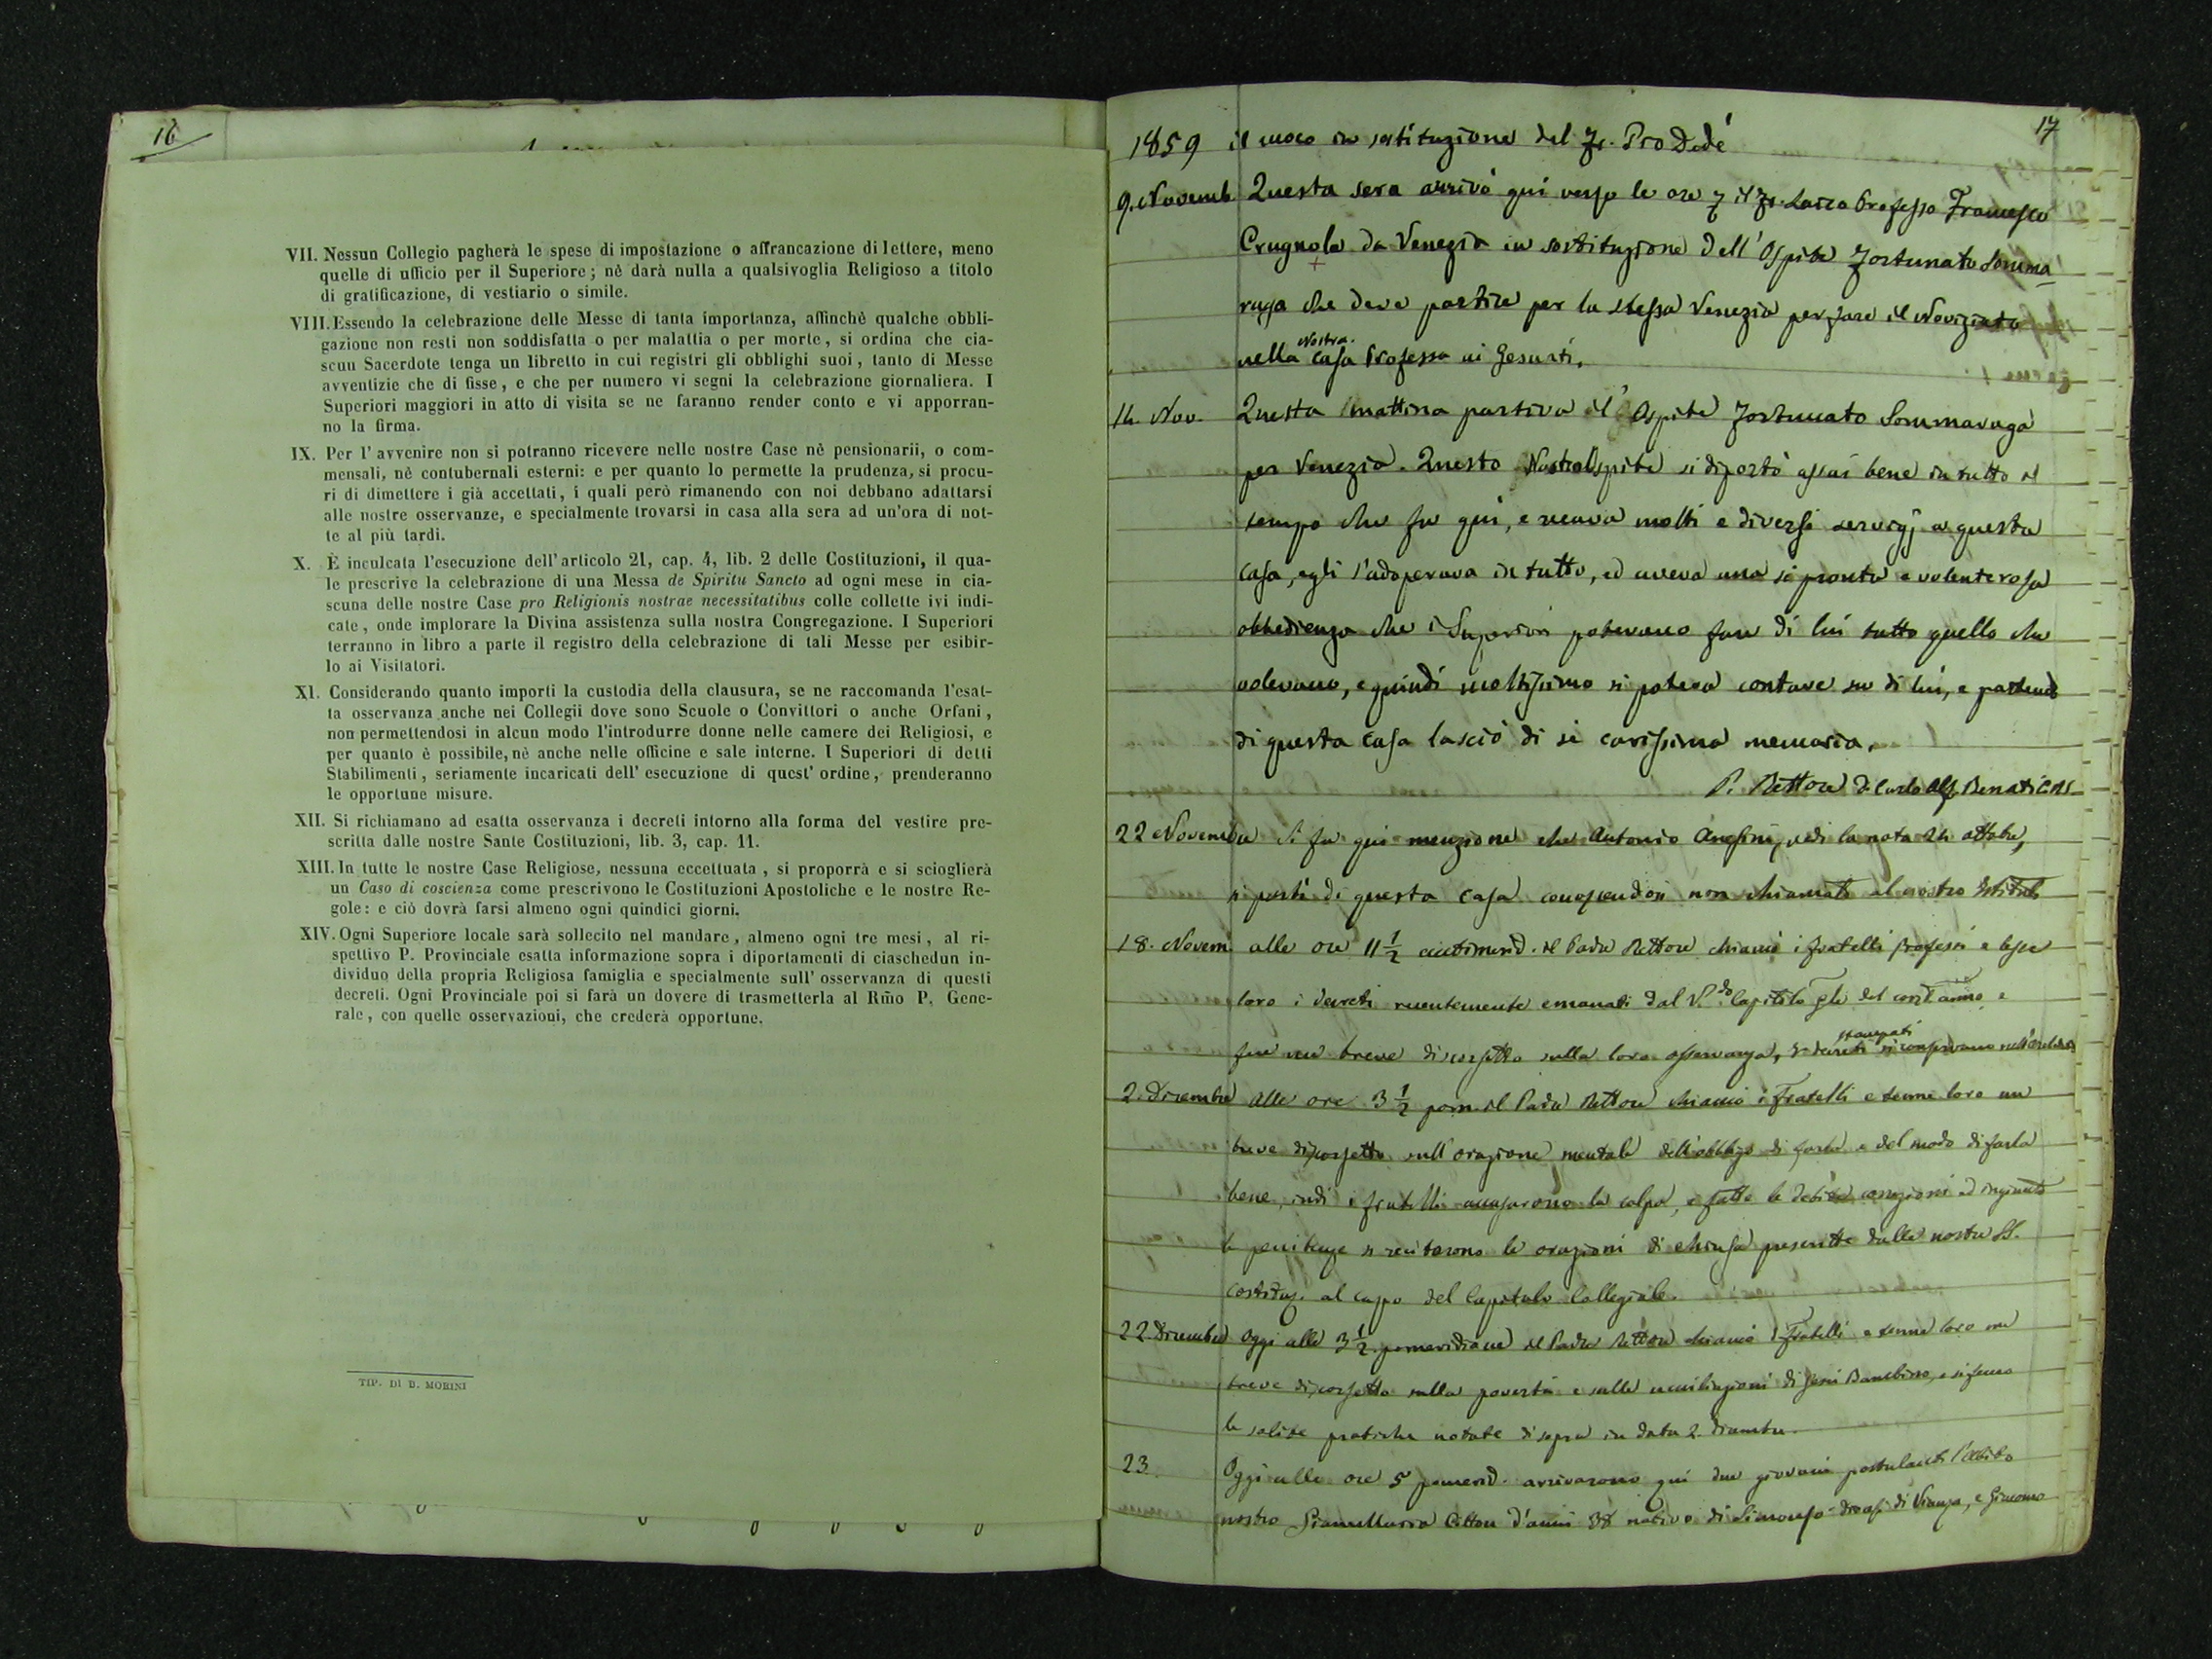 16
VII. Nessun Collegio pagherà le spese di impostazione o affrancazione di lettere, meno
quelle di ufficio per il Superiore; nè darà nulla a qualsivoglia Religioso a titolo
di gratificazione, di vestiario o simile.
VIII. Essendo la celebrazione delle Messe di tanta importanza, affinchè qualche obbli-
gazione non resti non soddisfatta o per malattia o per morte, si ordina che cia-
scun Sacerdote tenga un libretto in cui registri gli obblighi suoi, tanto di Messe
avventizie che di fisse, e che per numero vi segni la celebrazione giornaliera. I
Superiori maggiori in atto di visita se ne faranno render conto e vi apporran-
no la firma.
IX. Per l' avvenire non si potranno ricevere nelle nostre Case nè pensionarii, o com-
mensali, nè contubernali esterni: e per quanto lo permette la prudenza, si procu-
ri di dimettere i già accettati, i quali però rimanendo con noi debbano adattarsi
alle nostre osservanze, e specialmente trovarsi in casa alla sera ad un'ora di not-
te al più tardi.
X. È inculcata l'esecuzione dell'articolo 21, cap. 4, lib. 2 delle Costituzioni, il qua-
le prescrive la celebrazione di una Messa de Spiritu Sancto ad ogni mese in cia-
scuna delle nostre Case pro Religionis nostrae necessitatibus colle collette ivi indi-
cate, onde implorare la Divina assistenza sulla nostra Congregazione. I Superiori
terranno in libro a parte il registro della celebrazione di tali Messe per esibir-
lo ai Visitatori.
XI. Considerando quanto importi la custodia della clausura, se ne raccomanda l'esat-
ta osservanza anche nei Collegii dove sono Scuole o Convittori o anche Orfani,
non permettendosi in alcun modo l'introdurre donne nelle camere dei Religiosi, e
per quanto è possibile, nè anche nelle officine e sale interne. I Superiori di detti
Stabilimenti, seriamente incaricati dell' esecuzione di quest' ordine, prenderanno
le opportune misure.
XII. Si richiamano ad esatta osservanza i decreti intorno alla forma del vestire pre-
scritta dalle nostre Sante Costituzioni, lib. 3, cap. 11.
XIII. In tutte le nostre Case Religiose, nessuna eccettuata, si proporrà e si scioglierà
un Caso di coscienza come prescrivono le Costituzioni Apostoliche e le nostre Re-
gole: e ciò dovrà farsi almeno ogni quindici giorni.
XIV. Ogni Superiore locale sarà sollecito nel mandare, almeno ogni tre mesi, al ri-
spettivo P. Provinciale esatta informazione sopra i diportamenti di ciaschedun in-
dividuo della propria Religiosa famiglia e specialmente sull' osservanza di questi
decreti. Ogni Provinciale poi si farà un dovere di trasmetterla al Rm̃o P. Gene-
rale, con quelle osservazioni, che crederà opportune.
TIP. DI B. MORINI
17
1859 il cuoco in sostituzione del Fr. Pro Dedé
9. Novemb. Questa sera arrivò quì verso le ore 7 il Fr. Laico Professo Francesco
Crugnola da Venezia in sostituzione dell' Ospite Fortunato Somma
ruga che deve partire per la stessa Venezia per fare il Noviziato
nella Nostra casa Professa ai Gesuati.
14. Nov. Questa mattina partiva l' Ospite Fortunato Sommaruga
per Venezia. Questo Nostro Ospite si diportò assai bene in tutto il
tempo che fu quì, e recava molti e diversi servigj a questa
casa, egli s'adoperava in tutto, ed aveva una sì pronta e volenterosa
obbedienza che i Superiori potevano fare di lui tutto quello che
volevano, e quindi moltissimo si poteva contare su di lui, e partendo
di questa casa lasciò di sè carissima memoria.
P. Rettore D. Carlo Alf. Benati CRS
22 Novembre Si fa quì menzione che Antonio vedi la nota 24 ottobre,
si partì di questa casa conoscendosi non chiamato al nostro Istituto
18. Novem alle ore 11 1/2 antimerid. il Padre Rettore chiamò i fratelli professi e lesse
loro i decreti recentemente emanati dal V.do Capitolo Gle del cort. anno e
fece un breve discorsetto sulla loro osservanza, i decreti stampati si conservano nell'
2. Dicembre alle ore 3 1/2 pom. il Padre Rettore chiamò i Fratelli e tenne loro un
breve discorsetto sull'orazione mentale dell'obbligo di farla e del modo di farla
bene, indi i fratelli accusarono la colpa, e fatte le debite correzioni ed ingiunte
le penitenze si recitarono le orazioni di chiusa prescritte dalle nostre SS.
costituz. al capo del Capitolo Collegiale.
22. Dicembre Oggi alle 3 1/2 pomeridiane il Padre Rettore chiamò i Fratelli e tenne loro un
breve discorsetto sulla povertà e sulle umiliazioni di Gesù Bambino, e si fecero
le solite pratiche notate di sopra in data 2. Dicembre.
23. Oggi alle ore 5 pomerid. arrivarono quì due giovani postulanti l'abito
nostro d'anni 38 nativo di di Vicenza, e Giacomo